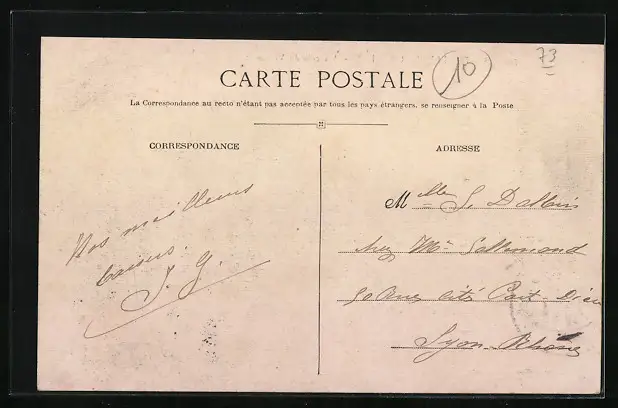 10
73
CARTE POSTALE
La Correspondance au recto n'étant pas acceptée par tous les pays étrangers, se renseigner à la Poste
CORRESPONDANCE
ADRESSE
Nos meilleurs
baisers.
J. G.
Mlle
chez Mr
Part-Dieu
Lyon-Rhône